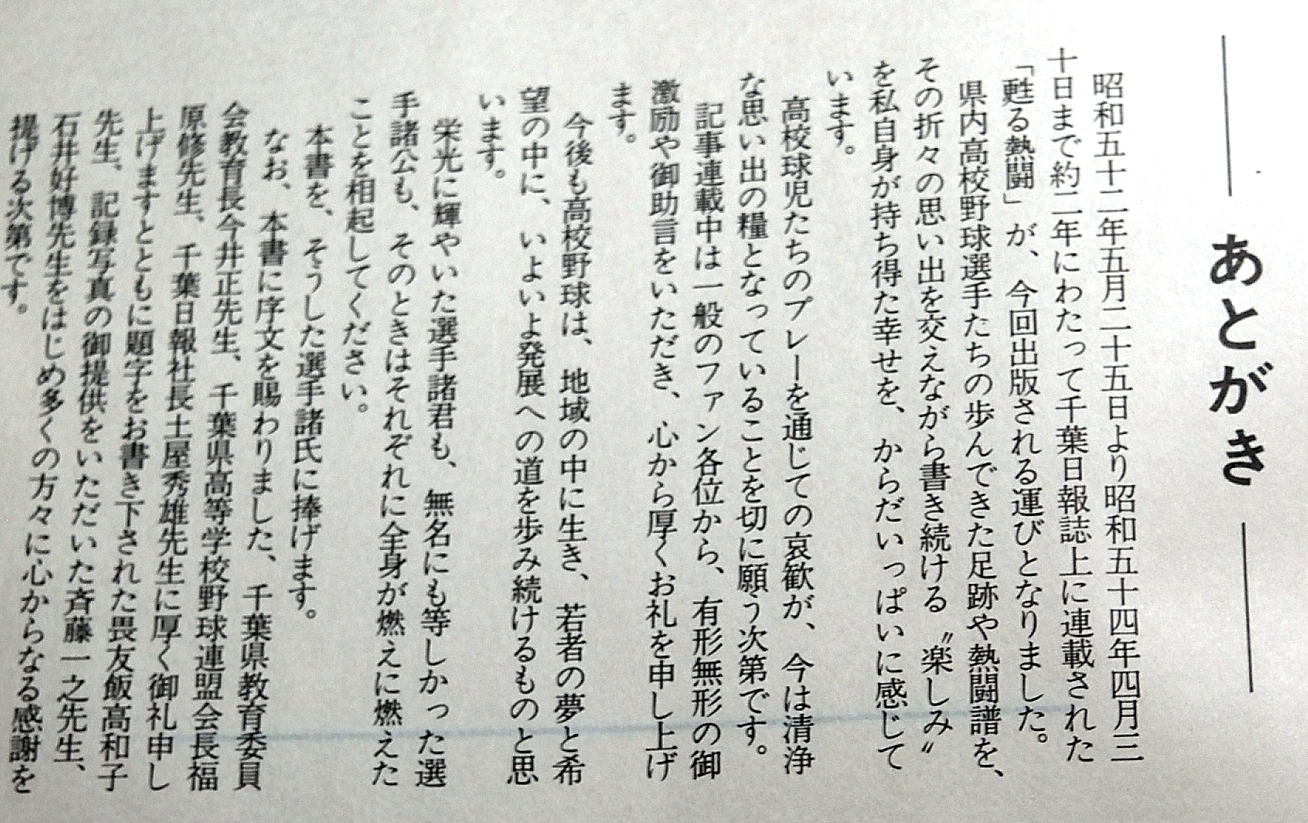 あとがき
昭和五十二年五月二十五日より昭和五十四年四月三
十日まで約二年にわたって千葉日報誌上に連載された
「甦る熱闘」が、今回出版される運びとなりました。
県内高校野球選手たちの歩んできた足跡や熱闘譜を、
その折々の思い出を交えながら書き続ける〝楽しみ〟
を私自身が持ち得た幸せを、からだいっぱいに感じて
います。
高校球児たちのプレーを通じての哀歓が、今は清浄
な思い出の糧となっていることを切に願う次第です。
記事連載中は一般のファン各位から、有形無形の御
激励や御助言をいただき、心から厚くお礼を申し上げ
ます。
今後も高校野球は、地域の中に生き、若者の夢と希
望の中に、いよいよ発展への道を歩み続けるものと思
います。
栄光に輝やいた選手諸君も、無名にも等しかった選
手諸公も、そのときはそれぞれに全身が燃えに燃えた
ことを相起してください。
本書を、そうした選手諸氏に捧げます。
なお、本書に序文を賜わりました、千葉県教育委員
会教育長今井正先生、千葉県高等学校野球連盟会長福
原修先生、千葉日報社長土屋秀雄先生に厚く御礼申し
上げますとともに題字をお書き下された畏友飯高和子
先生、記録写真の御提供をいただいた斉藤一之先生、
石井好博先生をはじめ多くの方々に心からなる感謝を
提げる次第です。